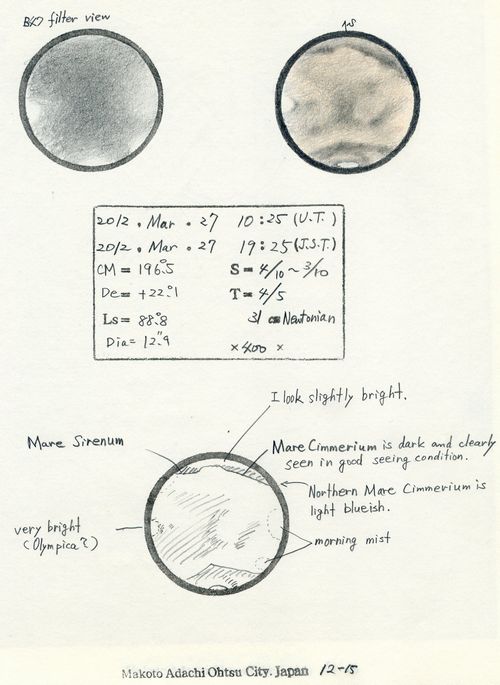 filter view
↑S
2012 . Mar . 27 10:25 (U.T.)
2012 . Mar . 27 19:25 (J.S.T.)
CM = 196.°5 S = 4/10 ~ 3/10
De = +22.°1 T = 4/5
Ls = 88.°8 31 cm Newtonian
Dia = 12."9 ×400 ×
I look slightly bright.
Mare Sirenum
Mare Cimmerium is dark and clearly
seen in good seeing condition.
Northern Mare Cimmerium is
light blueish.
very bright
(Olympica?)
morning mist
Makoto Adachi Ohtsu City. Japan 12-15